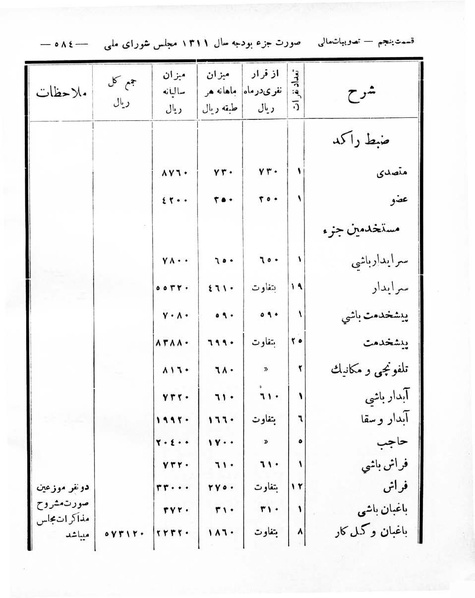 قسمت پنجم — تصویبات مالی صورت جزء بودجه سال ۱۳۱۱ مجلس شورای ملی —۵۸۴—
شرح تعداد نفرات از قرار نفری درماه ریال میزان ماهانه هر طبقه ریال میزان سالیانه ریال جمع کل ریال ملاحظات
ضبط راکد
متصدی ۱ ۷۳۰ ۷۳۰ ۸۷۶۰
عضو ۱ ۳۵۰ ۳۵۰ ۴۲۰۰
مستخدمین جزء
سرایدارباشی ۱ ۶۵۰ ۶۵۰ ۷۸۰۰
سرایدار ۱۹ بتفاوت ۴۶۱۰ ۵۵۳۲۰
پیشخدمت باشی ۱ ۵۹۰ ۵۹۰ ۷۰۸۰
پیشخدمت ۲۵ بتفاوت ۶۹۹۰ ۸۳۸۸۰
تلفونچی و مکانیك ۲ » ۶۸۰ ۸۱۶۰
آبدار باشی ۱ ۶۱۰ ۶۱۰ ۷۳۲۰
آبدار و سقا ۶ بتفاوت ۱۶۶۰ ۱۹۹۲۰
حاجب ۵ » ۱۷۰۰ ۲۰۴۰۰
فراش باشی ۱ ۶۱۰ ۶۱۰ ۷۳۲۰
فراش ۱۲ بتفاوت ۲۷۵۰ ۳۳۰۰۰ دو نفر موزعین
باغبان باشی ۱ ۳۱۰ ۳۱۰ ۳۷۲۰ صورت مشروح مذاکرات مجلس
باغبان و گـل کار ۸ بتفاوت ۱۸۶۰ ۲۲۳۲۰ ۵۷۳۱۲۰ میباشد